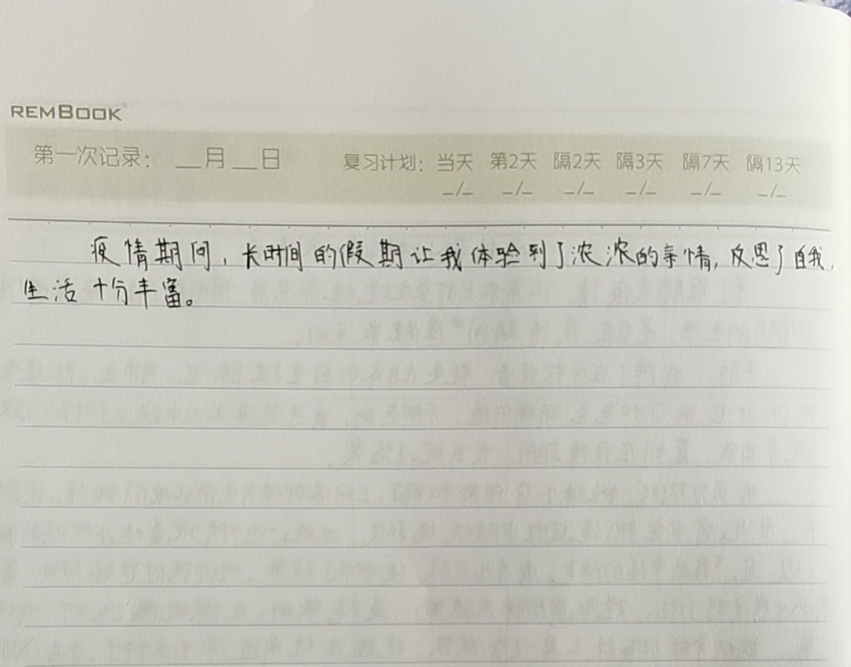 REMBOOK
第一次记录： __月__日 复习计划： 当天 第2天 隔2天 隔3天 隔7天 隔13天
_/_ _/_ _/_ _/_ _/_ _/_
疫情期间，长时间的假期让我体验到了浓浓的亲情，反思了自我，
生活十分丰富。